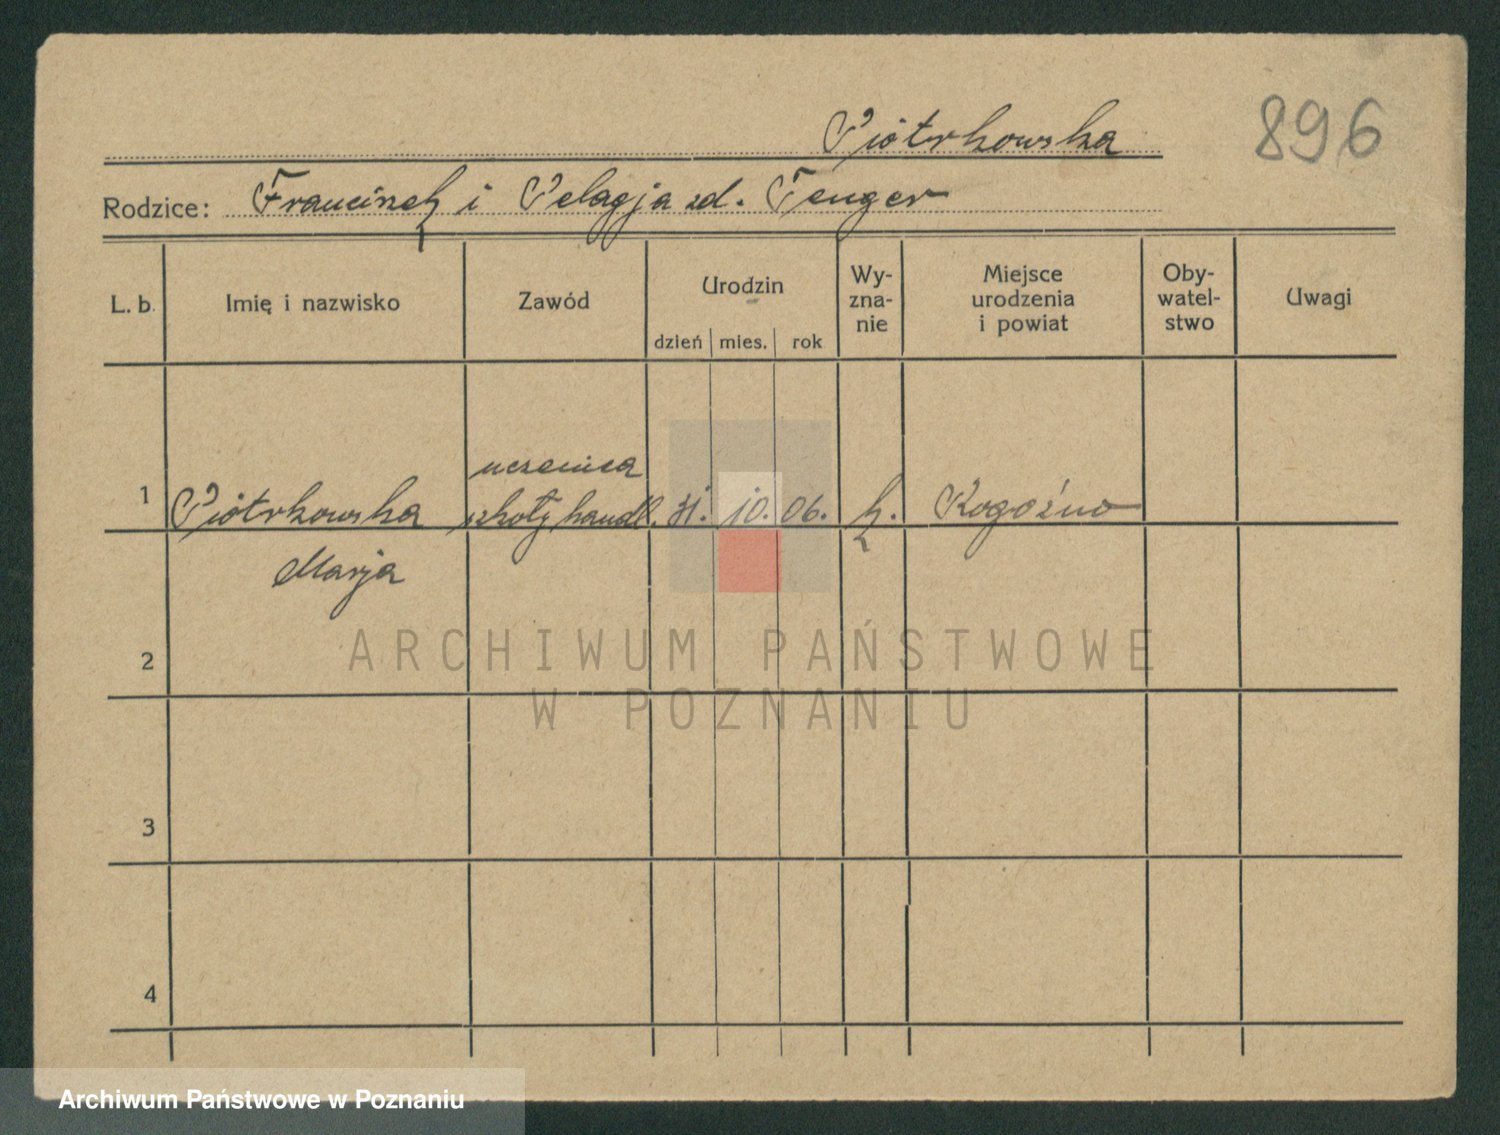 Piotrkowska
896
Rodzice: Franciszek i Pelagja zd. Tenger
L. b. Imię i nazwisko Zawód Urodzin dzień mies. rok Wy-zna-nie Miejsce urodzenia i powiat Oby-watel-stwo Uwagi
uczenica
1 Piotrkowska szkoły handl. 31. 10. 06. k. Rogoźno
Marja
2
3
4
ARCHIWUM PAŃSTWOWE
W POZNANIU
Archiwum Państwowe w Poznaniu